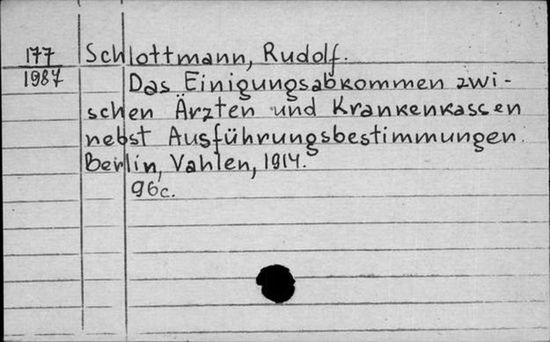 177
1987
Schlottmann, Rudolf.
Das Einigungsabkommen zwi-
schen Ärzten und Krankenkassen
nebst Ausführungsbestimmungen.
Berlin, Vahlen, 1914.
96c.